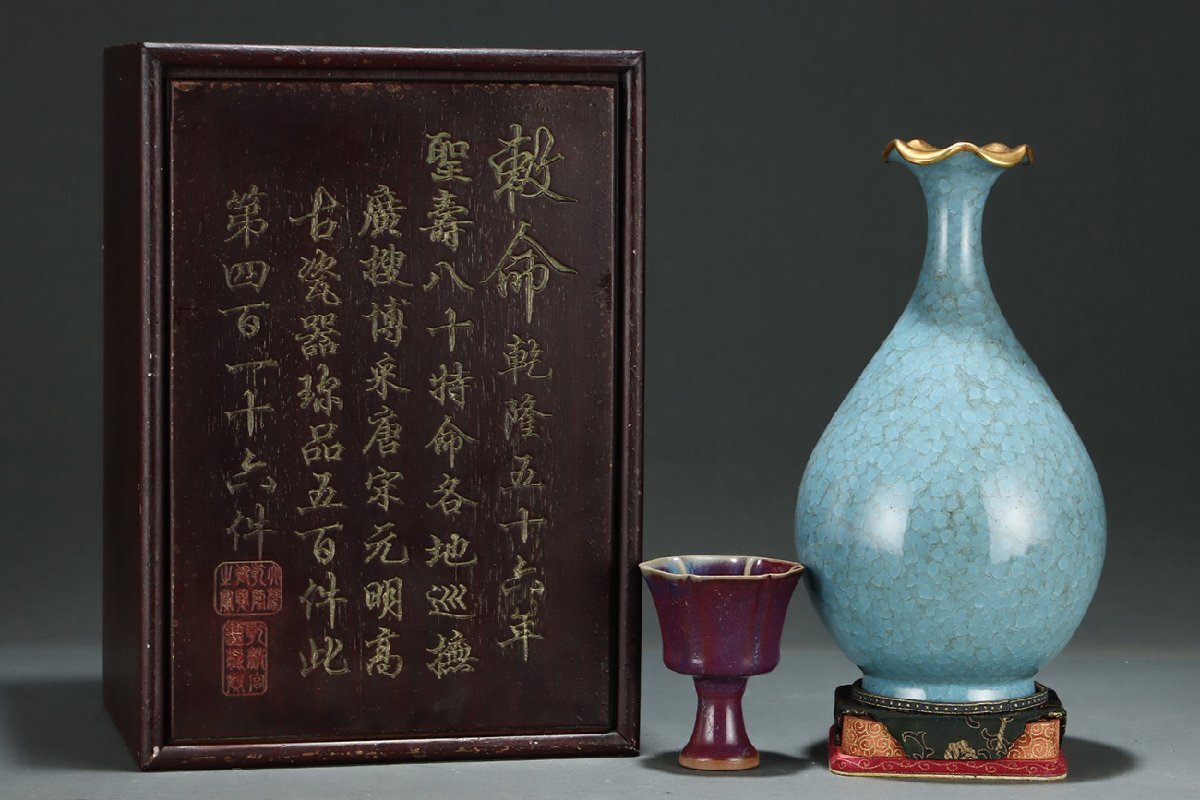 敕命乾隆五十六年
聖壽八十特命各地巡撫
廣搜博采唐宋元明高
古瓷器珎品五百件此
第四百一十六件